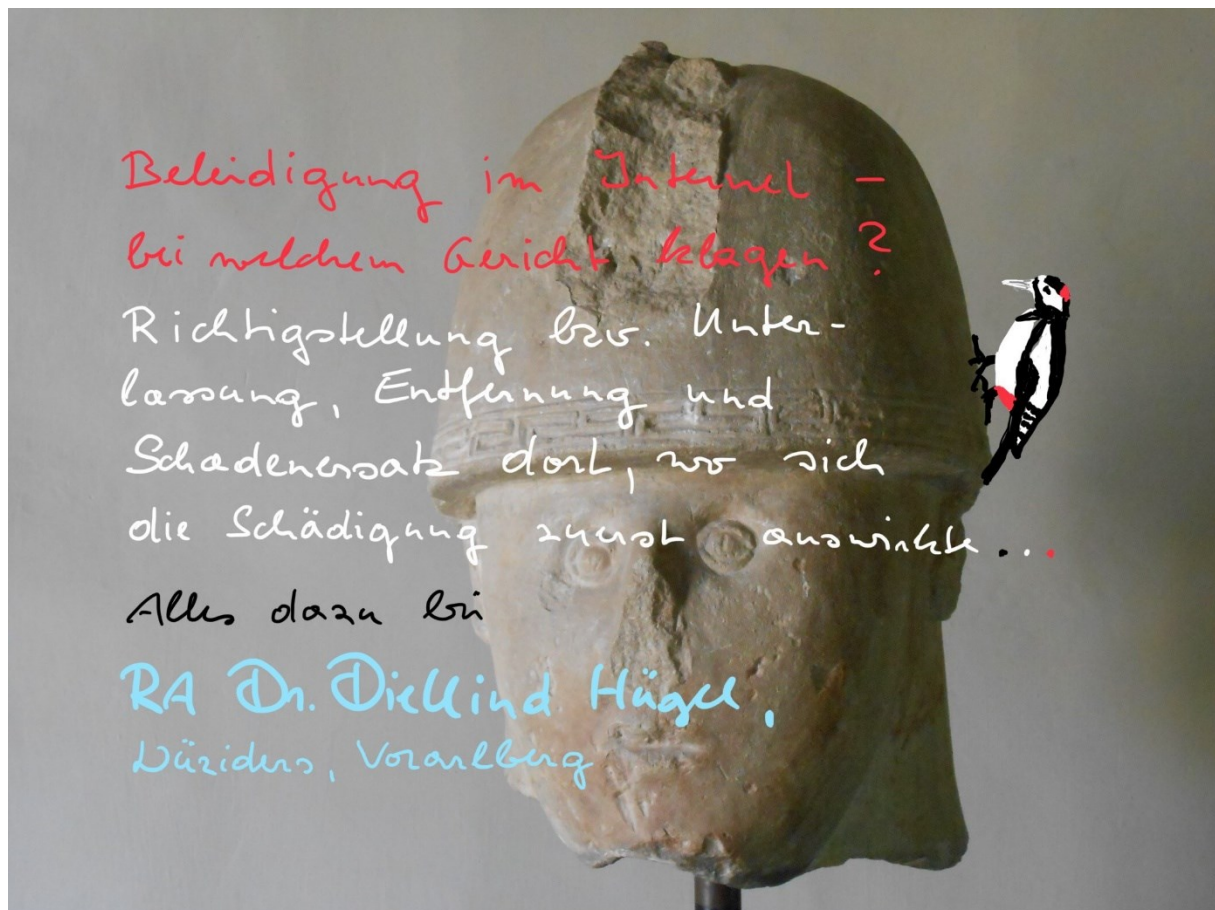 Beleidigung im Internet –
bei welchem Gericht klagen?
Richtigstellung bzw. Unter-
lassung, Entfernung und
Schadenersatz dort, wo sich
die Schädigung zuerst auswirkte...
Alles dazu bei
RA Dr. Dietlind Hügel,
Nüziders, Vorarlberg